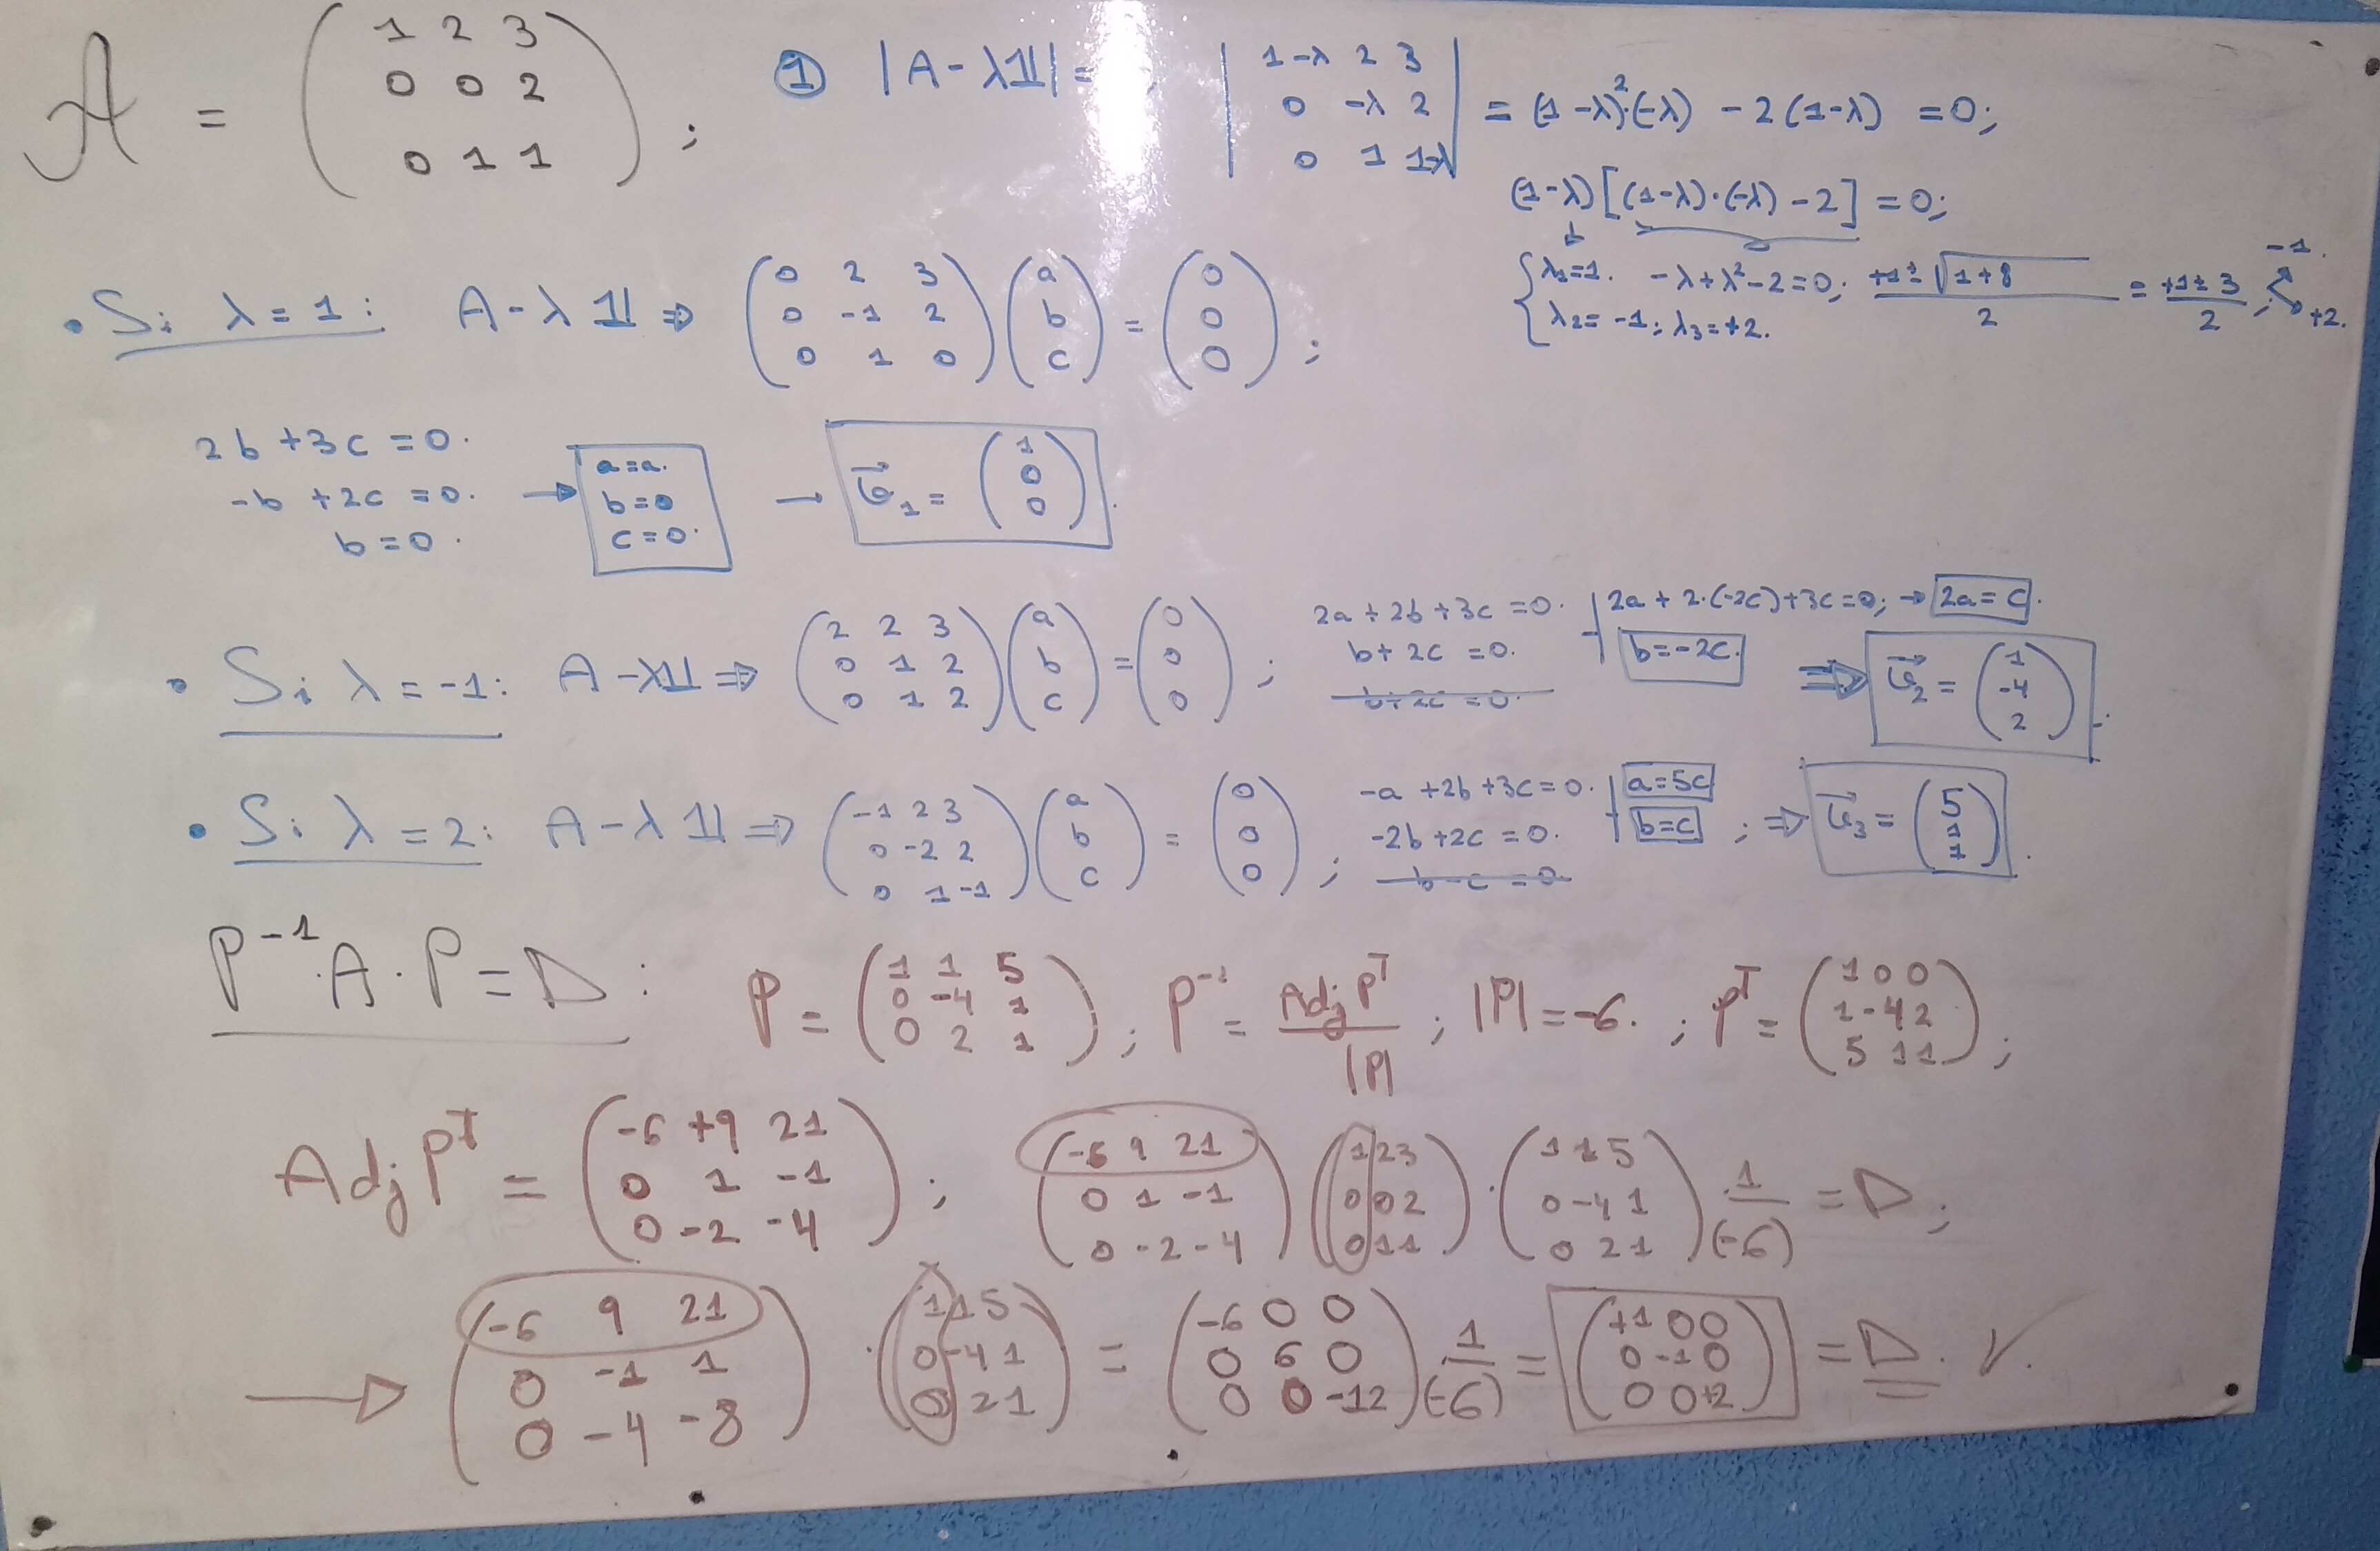 A = ( 1 2 3 / 0 0 2 / 0 1 1 ) ; ① |A - λ𝟙| = | 1-λ 2 3 / 0 -λ 2 / 0 1 1-λ | = (1-λ)²·(-λ) - 2(1-λ) = 0;
(1-λ)[(1-λ)·(-λ) - 2] = 0;
{ λ₁=1. -λ+λ²-2=0; +1±√1+8 / 2 = +1±3 / 2 ; -1. +2.
λ₂=-1; λ₃=+2.
• Si λ=1: A-λ𝟙 ⇒ ( 0 2 3 / 0 -1 2 / 0 1 0 ) ( a / b / c ) = ( 0 / 0 / 0 ) ;
2b +3c =0.
-b +2c =0.
b=0.
→ a=a. b=0 c=0.
→ v⃗₁ = ( 1 / 0 / 0 ).
• Si λ=-1: A-λ𝟙 ⇒ ( 2 2 3 / 0 1 2 / 0 1 2 ) ( a / b / c ) = ( 0 / 0 / 0 ) ;
2a+2b+3c=0.
b+2c=0.
b+2c=0.
2a+2·(-2c)+3c=0; → 2a=c.
b=-2c.
⇒ v⃗₂ = ( 1 / -4 / 2 ).
• Si λ=2: A-λ𝟙 ⇒ ( -1 2 3 / 0 -2 2 / 0 1 -1 ) ( a / b / c ) = ( 0 / 0 / 0 ) ;
-a+2b+3c=0.
-2b+2c=0.
b-c=0
a=5c
b=c ; ⇒ v⃗₃ = ( 5 / 1 / 1 ).
P⁻¹·A·P=D: P = ( 1 1 5 / 0 -4 1 / 0 2 1 ) ; P⁻¹ = Adj Pᵀ / |P| ; |P|=-6. ; Pᵀ = ( 1 0 0 / 1 -4 2 / 5 1 1 ) ;
Adj Pᵀ = ( -6 +9 21 / 0 1 -1 / 0 -2 -4 ) ; ( -6 9 21 / 0 1 -1 / 0 -2 -4 ) ( 1 2 3 / 0 0 2 / 0 1 1 ) · ( 1 1 5 / 0 -4 1 / 0 2 1 ) · 1/(-6) = D;
→ ( -6 9 21 / 0 -1 1 / 0 -4 -8 ) · ( 1 1 5 / 0 -4 1 / 0 2 1 ) = ( -6 0 0 / 0 6 0 / 0 0 -12 ) 1/(-6) = ( +1 0 0 / 0 -1 0 / 0 0 +2 ) = D. ✓.